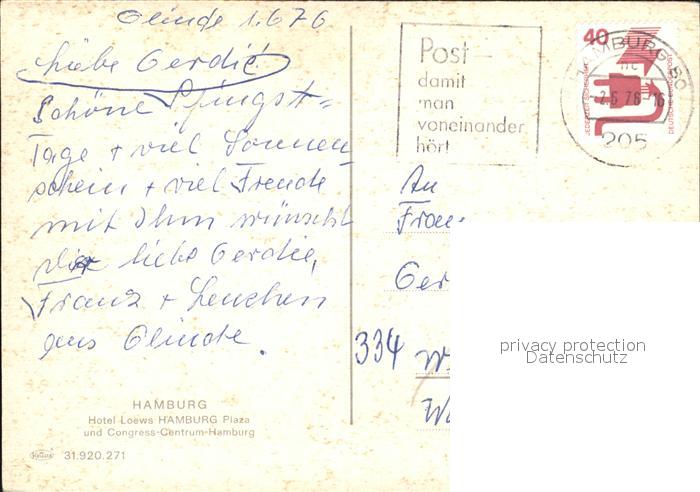 Glinde 1.6 76
Liebe Gerdie
Schöne Pfingst=
Tage + viel Sonnen
schein + viel Freude
mit Ihm wünscht
dir liebe Gerdie,
Franz + Lenchen
aus Glinde.
HAMBURG
Hotel Loews HAMBURG Plaza
und Congress-Centrum-Hamburg
31.920.271
Post
damit
man
voneinander
hört
40
HAMBURG 80
-2.6.76-16
205
An
Frau
Ger
334 W
privacy protection
Datenschutz